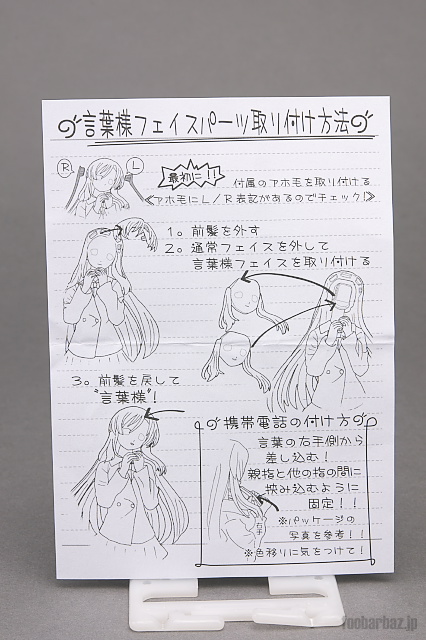 言葉様フェイスパーツ取り付け方法
R
L
最初に!!
付属のアホ毛を取り付ける
≪アホ毛にL/R表記があるのでチェック!≫
1。前髪を外す
2。通常フェイスを外して
言葉様フェイスを取り付ける
3。前髪を戻して
"言葉様"!
携帯電話の付け方
言葉の右手側から
差し込む!
親指と他の指の間に
挟み込むように
固定!!
※パッケージの
写真を参考!!
※色移りに気をつけて!
foobarbaz.jp